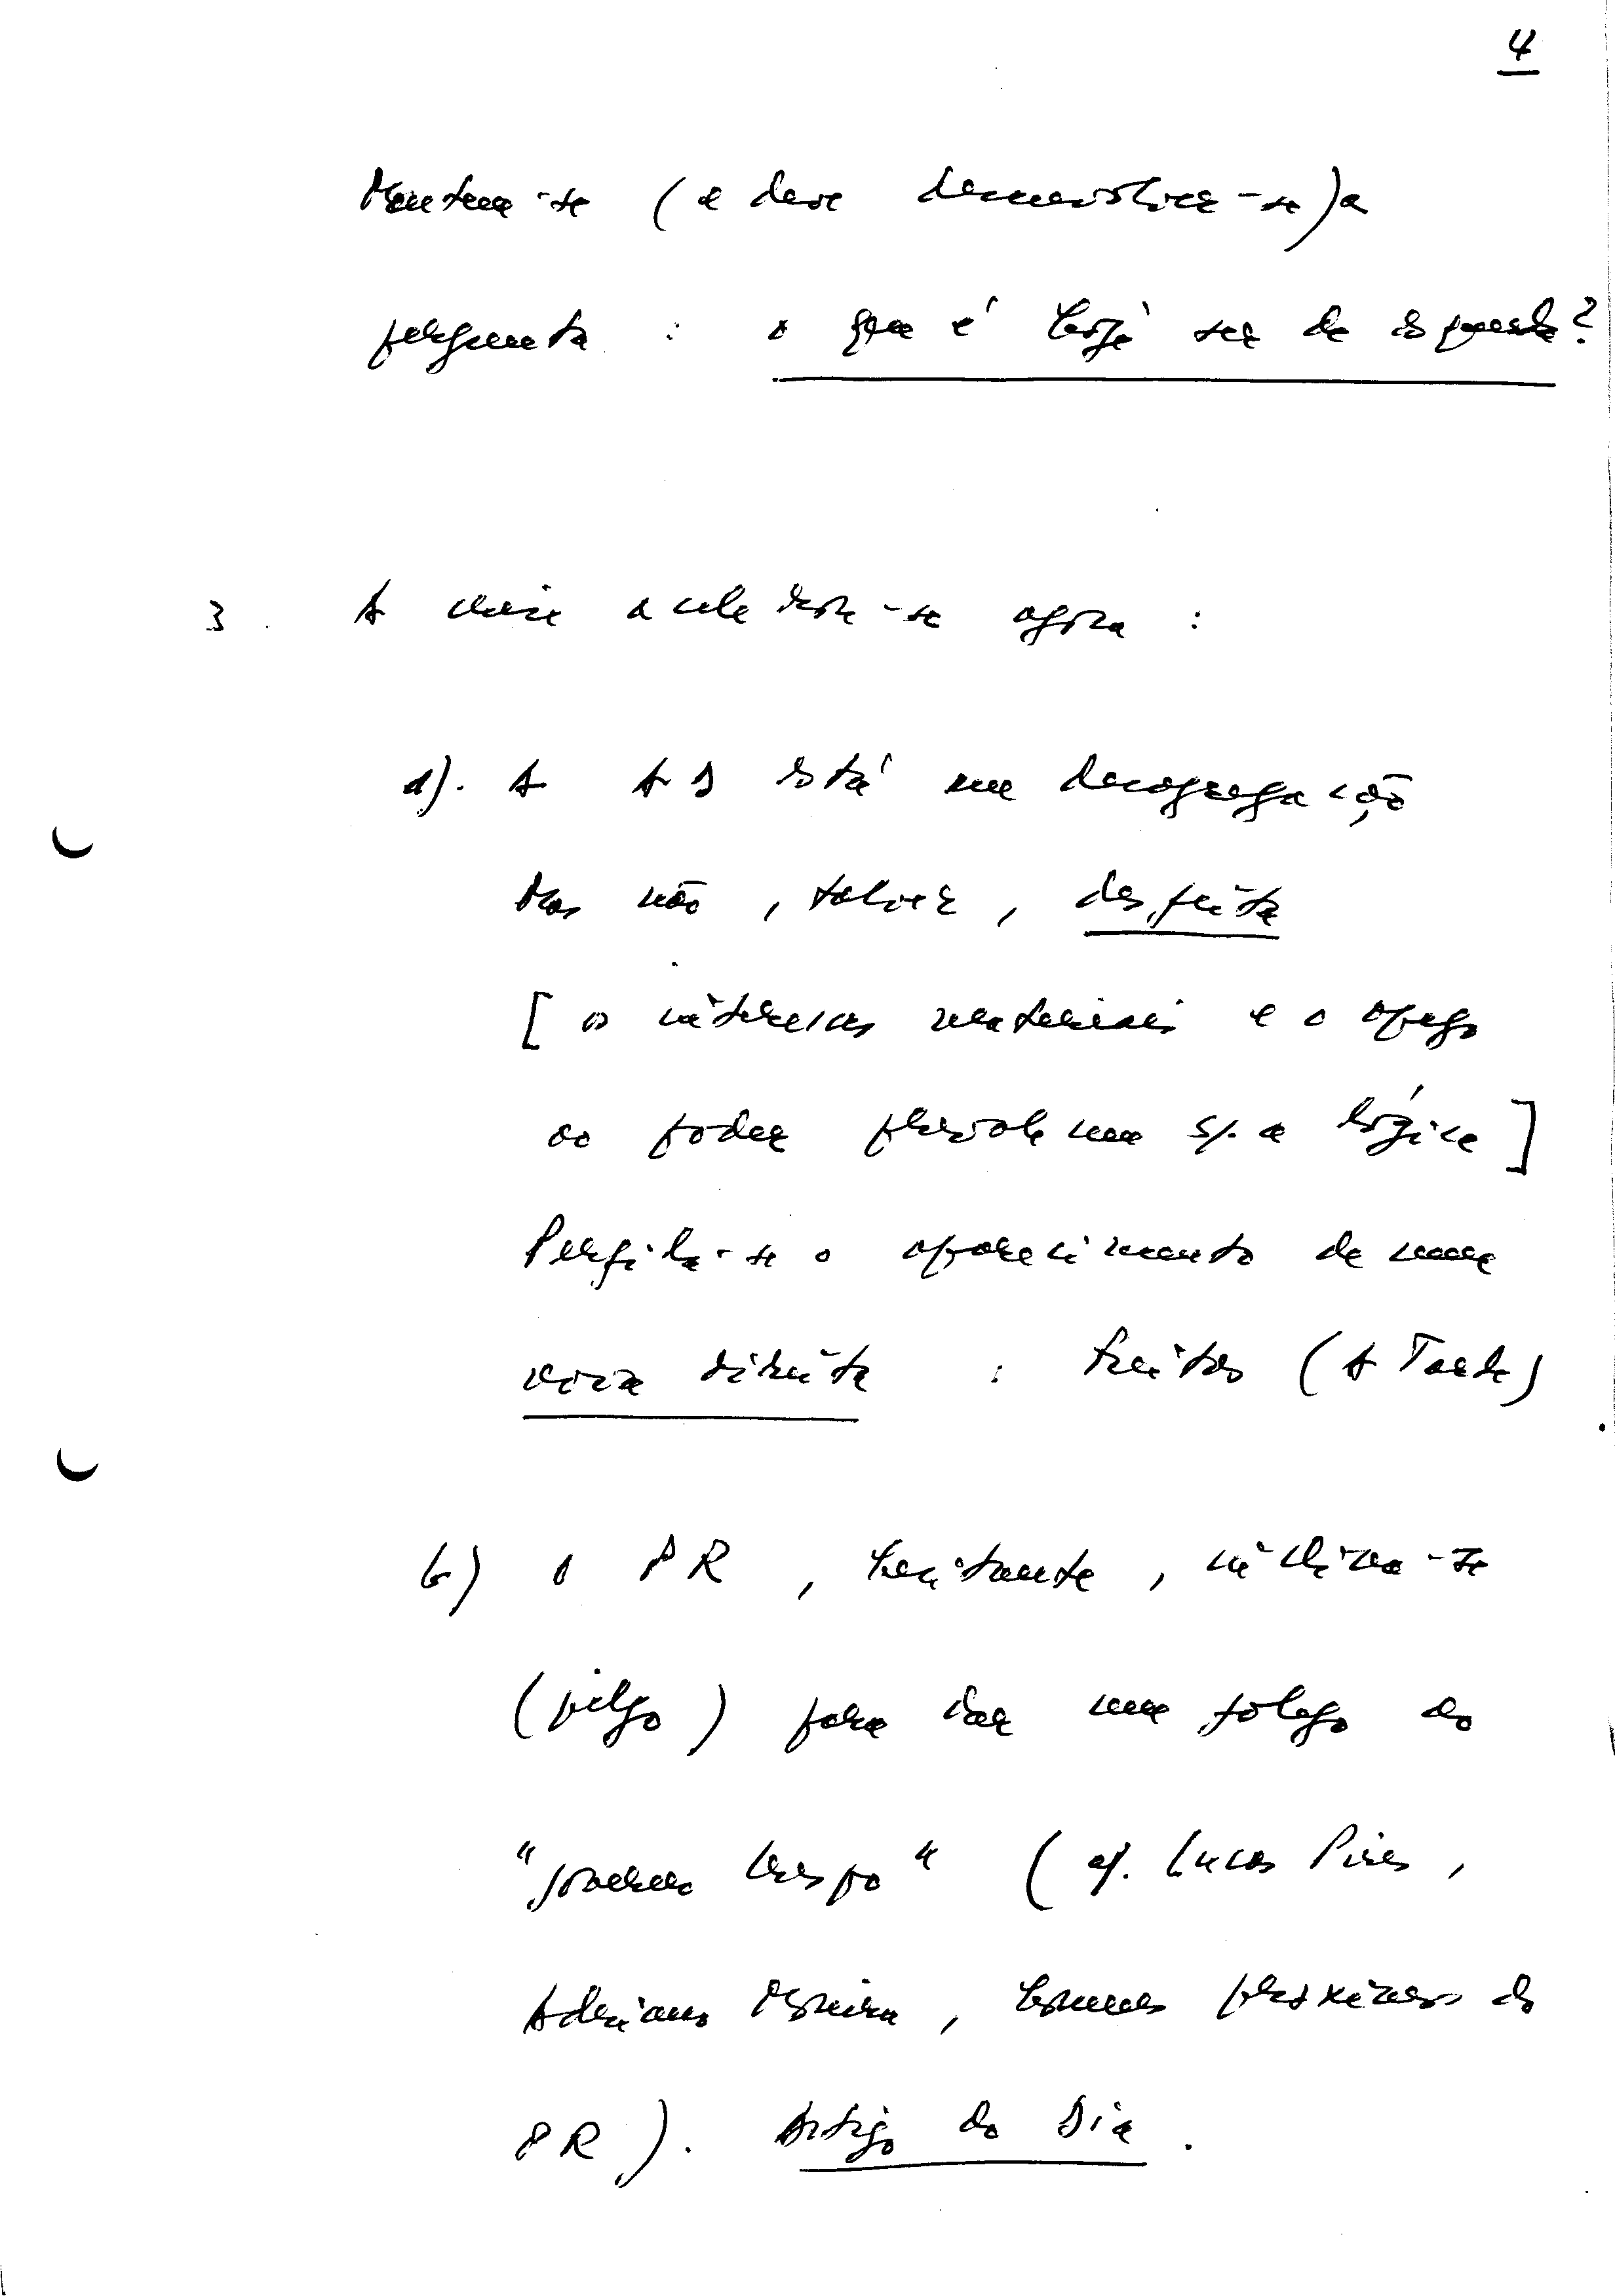 4
Mantem-se (e deve demonstrar-se) a
pergunta : o que é hoje ser de esquerda?
3. A crise acelerou-se agora :
a). A AD está em desagregação
Mas não, talvez, desfeita
[os interesses materiais e o apego
ao poder prevalecem s/. a lógica]
Perfila-se o aparecimento de uma
nova direita : Freitas (A Tarde)
b) O PR, hesitante, inclina-se
(julgo) para dar um fôlego ao
"governo Crespo" (cf. Lucas Pires,
Adriano Moreira, homens próximos do
PR). Artigo do Dia.